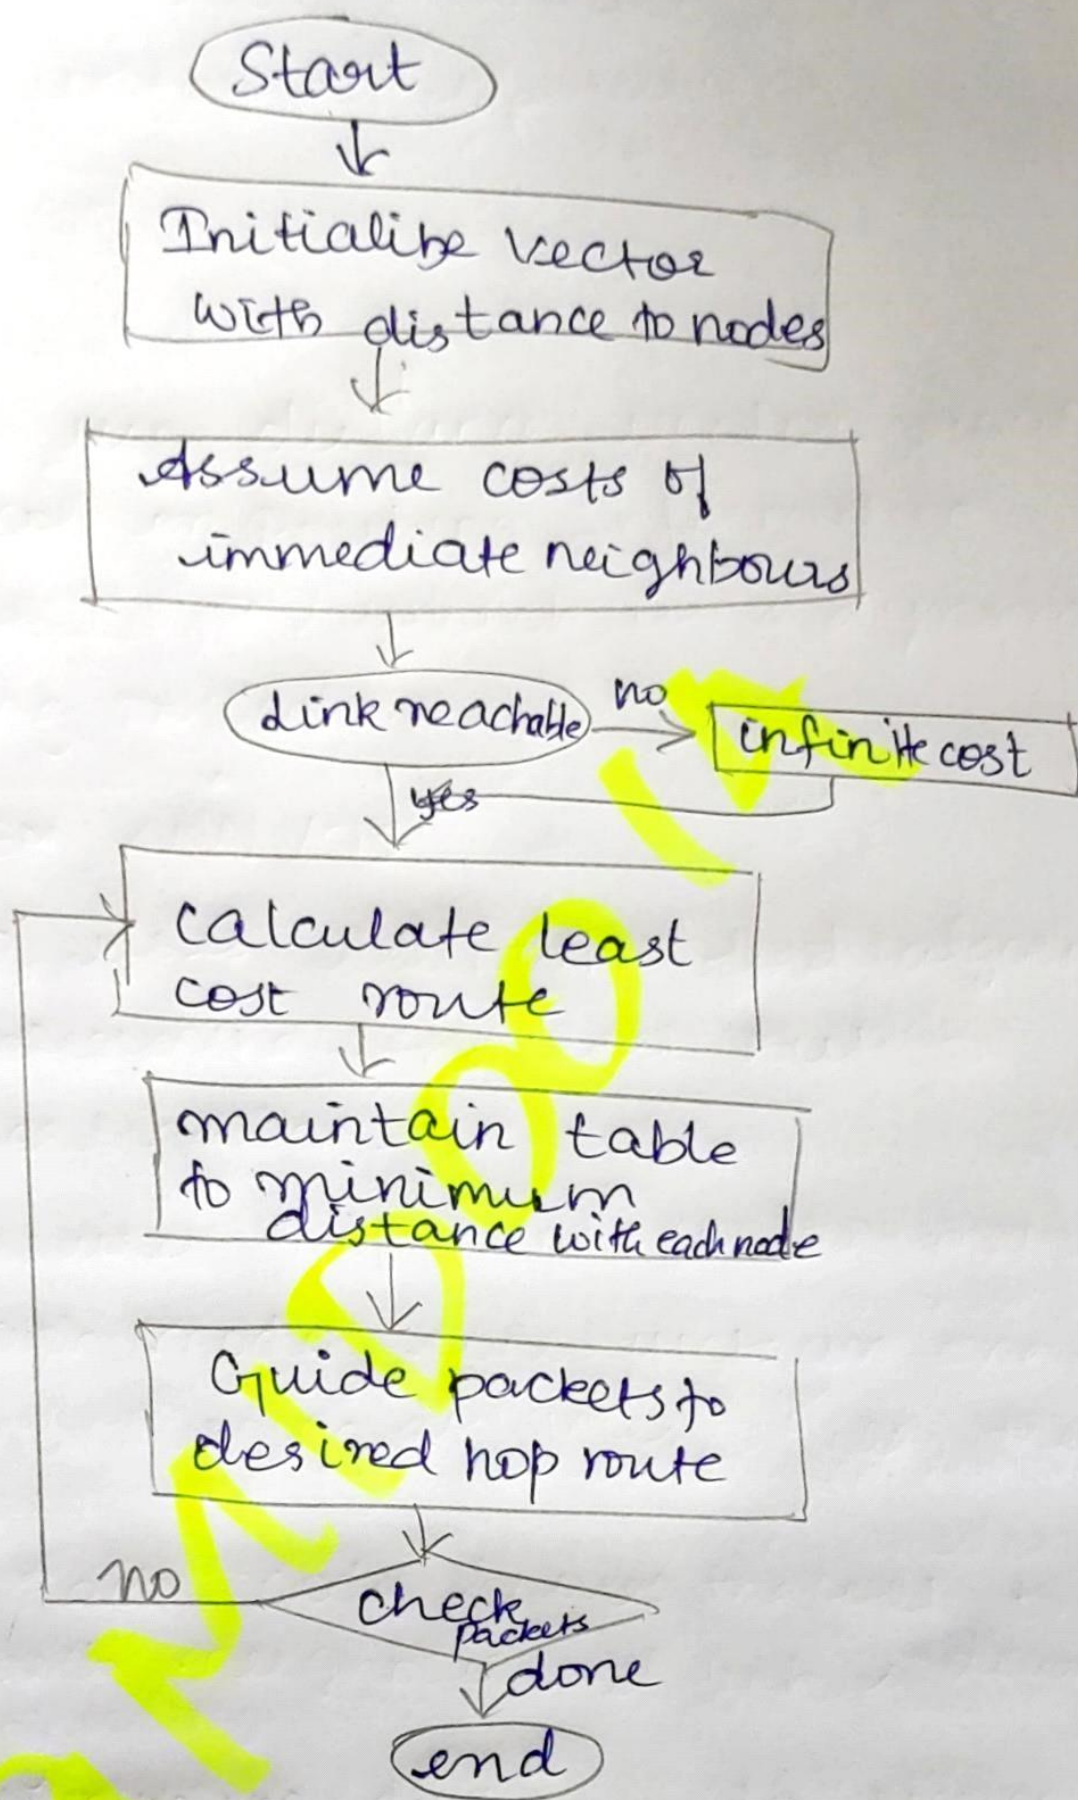 Start
Initialize vector
with distance to nodes
Assume costs of
immediate neighbours
Link reachable
no
infinite cost
yes
calculate least
cost route
maintain table
to minimum
distance with each node
Guide packets to
desired hop route
no
check
packets
done
end